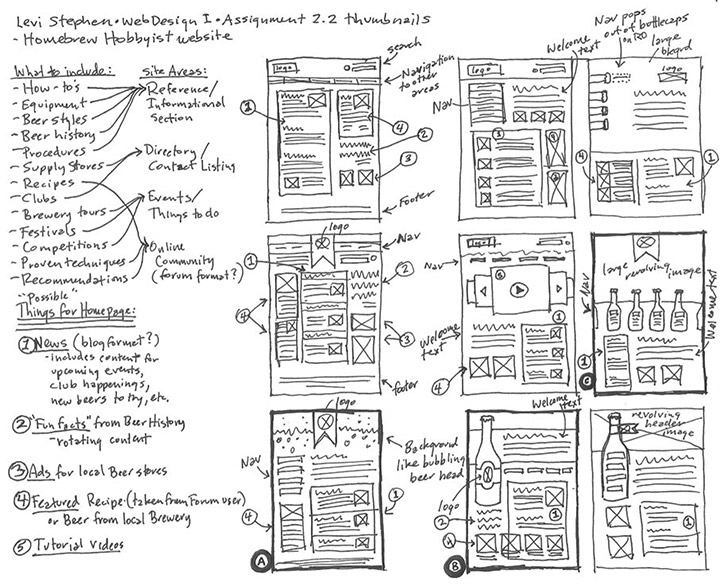 Levi Stephen • Web Design I • Assignment 2.2 thumbnails
- Homebrew Hobbyist website
What to include:
- How-to's
- Equipment
- Beer styles
- Beer history
- Procedures
- Supply Stores
- Recipes
- Clubs
- Brewery tours
- Festivals
- Competitions
- Proven techniques
- Recommendations
Site Areas:
Reference/
Informational
Section
Directory/
Contact Listing
Events/
Things to do
Online
Community
(forum format?)
"Possible"
Things for Homepage:
① News (blog format?)
- includes content for
upcoming events,
club happenings,
new beers to try, etc.
② "Fun facts" from Beer History
- rotating content
③ Ads for local Beer stores
④ Featured Recipe (taken from Forum user)
or Beer from local Brewery
⑤ Tutorial videos
logo
search
Navigation
to other
areas
①
④
②
③
Footer
logo
Nav
Welcome
text
①
Nav pops
out of bottlecaps
on RO
large
bkgrd
logo
④
①
logo
Nav
①
②
④
③
footer
logo
Nav
⑤
Welcome
text
①
④
Nav
large revolving image
Welcome text
①
C
logo
Nav
Background
like bubbling
beer head
①
④
A
Welcome
text
logo
②
①
4
B
revolving
header
image
①